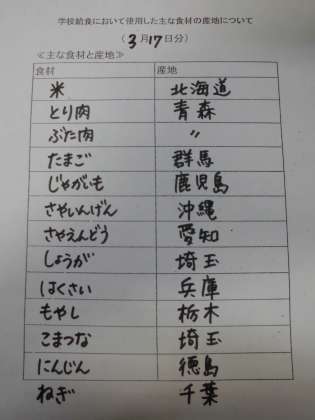 学校給食において使用した主な食材の産地について
（3月17日分）
≪主な食材と産地≫
食材 産地
米 北海道
とり肉 青森
ぶた肉 〃
たまご 群馬
じゃがいも 鹿児島
さやいんげん 沖縄
さやえんどう 愛知
しょうが 埼玉
はくさい 兵庫
もやし 栃木
こまつな 埼玉
にんじん 徳島
ねぎ 千葉